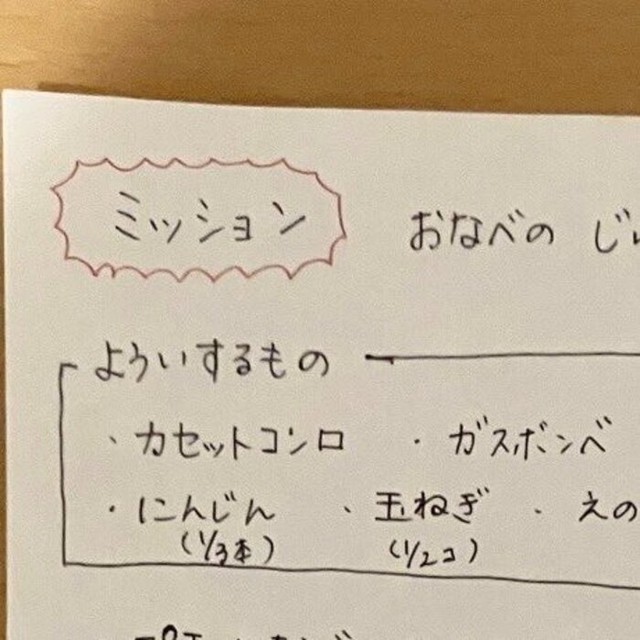 ミッション おなべの
よういするもの
・カセットコンロ ・ガスボンベ
・にんじん ・玉ねぎ ・えの
(1/3本) (1/2コ)